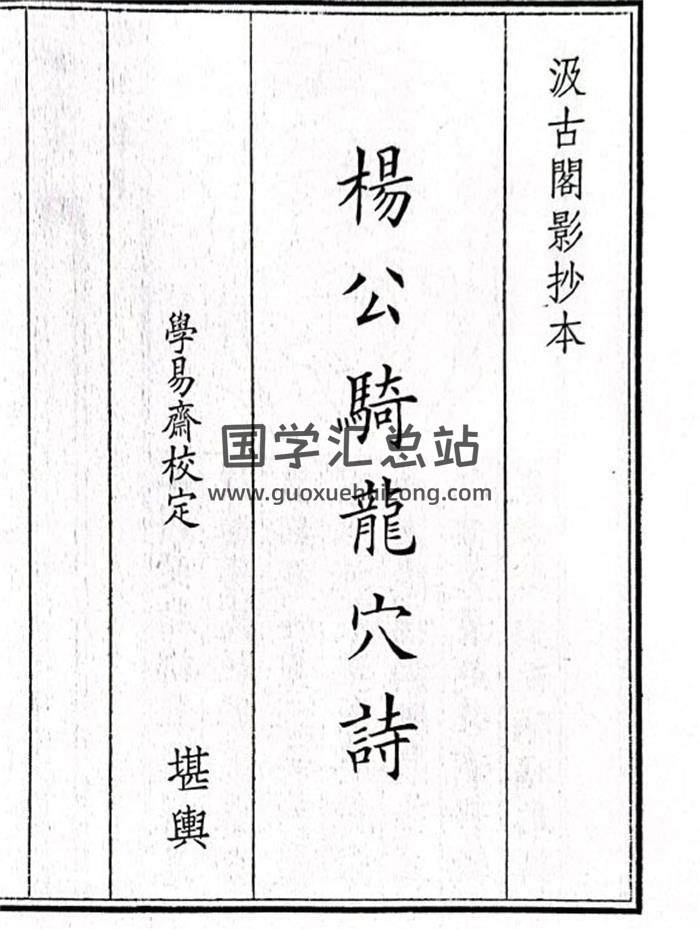 汲古閣影抄本
楊公騎龍穴詩
學易齋校定
堪輿
国学汇总站
www.guoxuehuizong.com